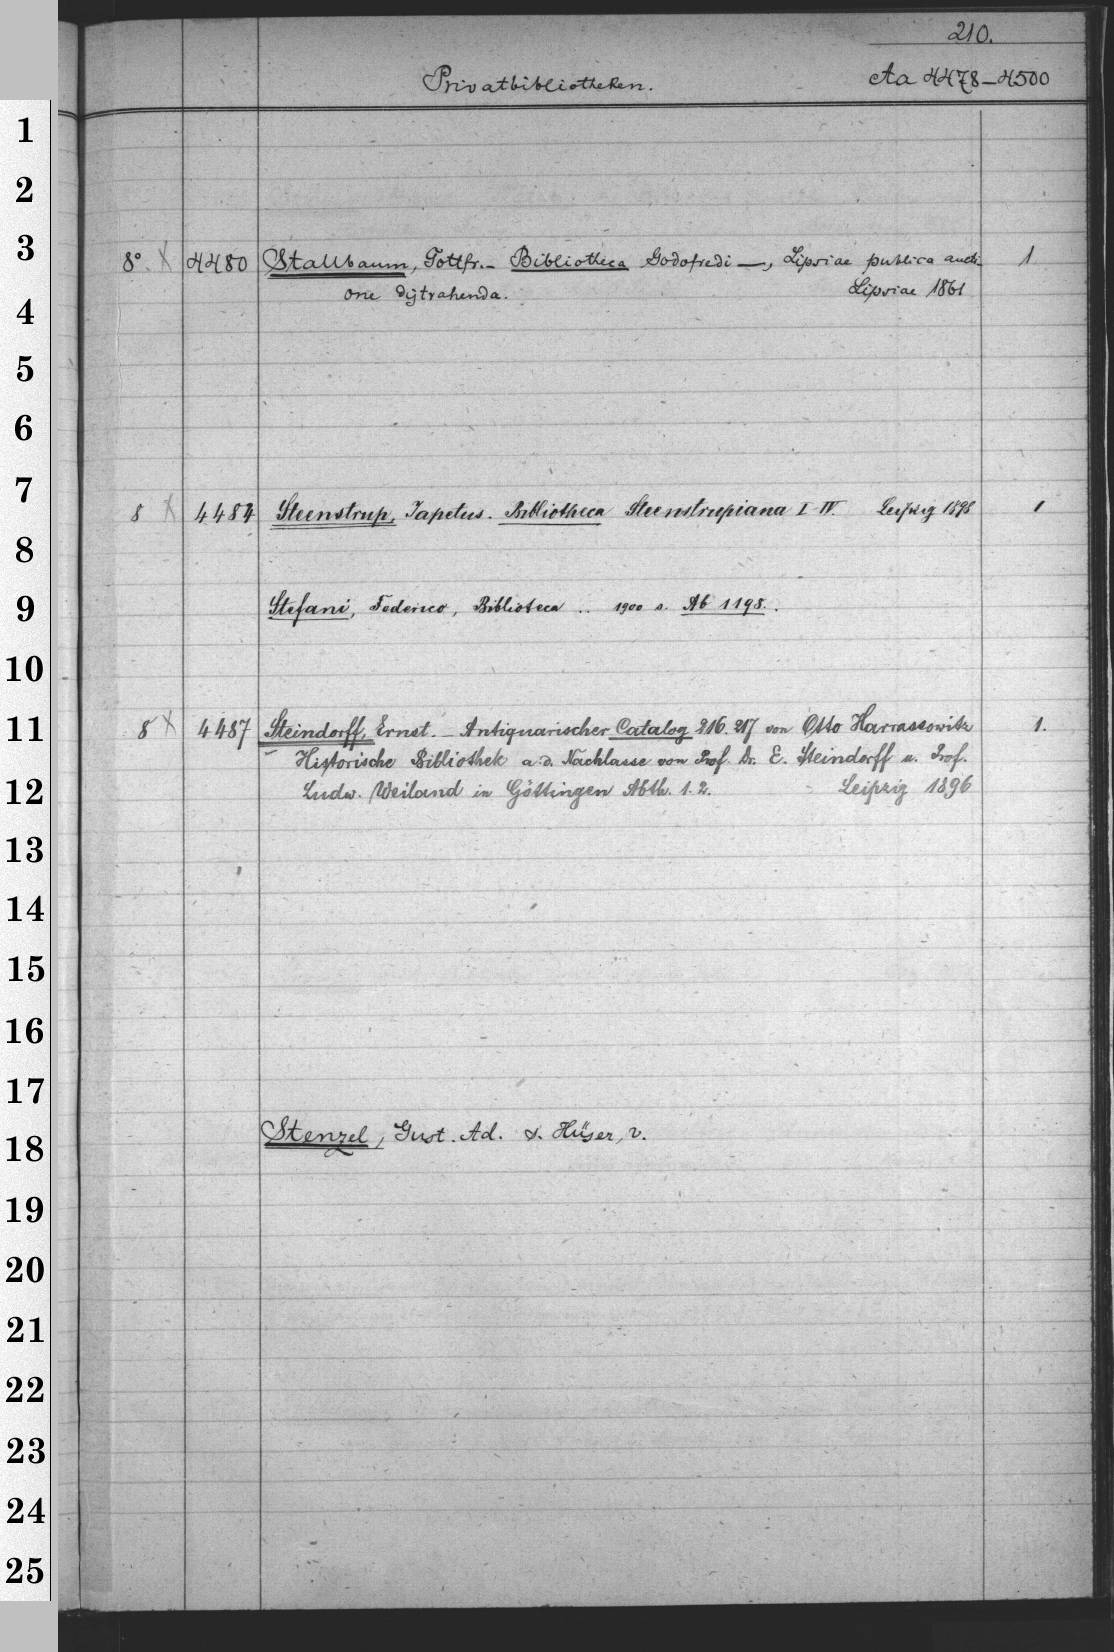 210.
Privatbibliotheken. Aa 4478-4500
1
2
3
8° X 4480 Stallbaum, Gottfr. - Bibliotheca Godofredi —, Lipsiae publica aucti- 1
one distrahenda. Lipsiae 1861
4
5
6
7
8 X 4484 Steenstrup, Japetus. Bibliotheca Steenstrupiana I-IV. Leipzig 1898 1
8
9
Stefani, Federico, Biblioteca .. 1900 s. Ab 1198.
10
11
8 X 4487 Steindorff, Ernst. - Antiquarischer Catalog 216. 217 von Otto Harrassowitz 1.
Historische Bibliothek a. d. Nachlasse von Prof. Dr. E. Steindorff u. Prof.
12
Ludw. Weiland in Göttingen Abth. 1. 2. Leipzig 1896
13
14
15
16
17
18
Stenzel, Gust. Ad. s. Hüser, v.
19
20
21
22
23
24
25